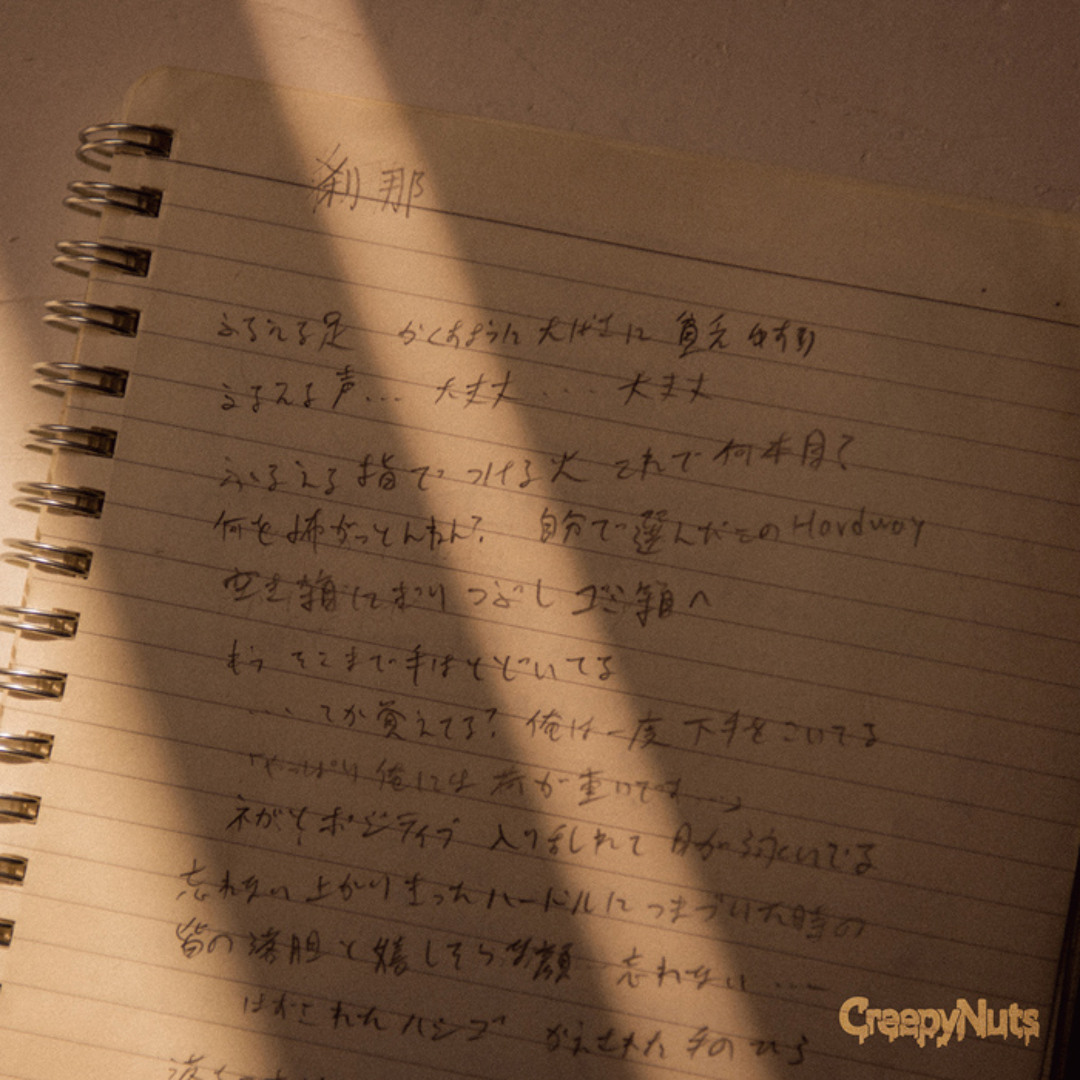 刹那
ふるえる足 かくすように 大げさに 貧乏ゆすり
ふるえる声... 大丈夫.... 大丈夫
ふるえる指で つける火 これで何本目?
何を怖がっとんねん? 自分で選んだこのHardway
空き箱にぎりつぶし ゴミ箱へ
もう そこまで手はとどいてる
....てか覚えてる? 俺は一度 下手をこいてる
「やっぱり 俺には 荷が重いです...」
ネガとポジティブ 入り乱れて 目が泳いでる
忘れない 上がり切ったハードルに つまづいた時の
皆の落胆と嬉しそうな顔 忘れない...
はずされたハシゴ かえされた手のひら
落ち
CreepyNuts